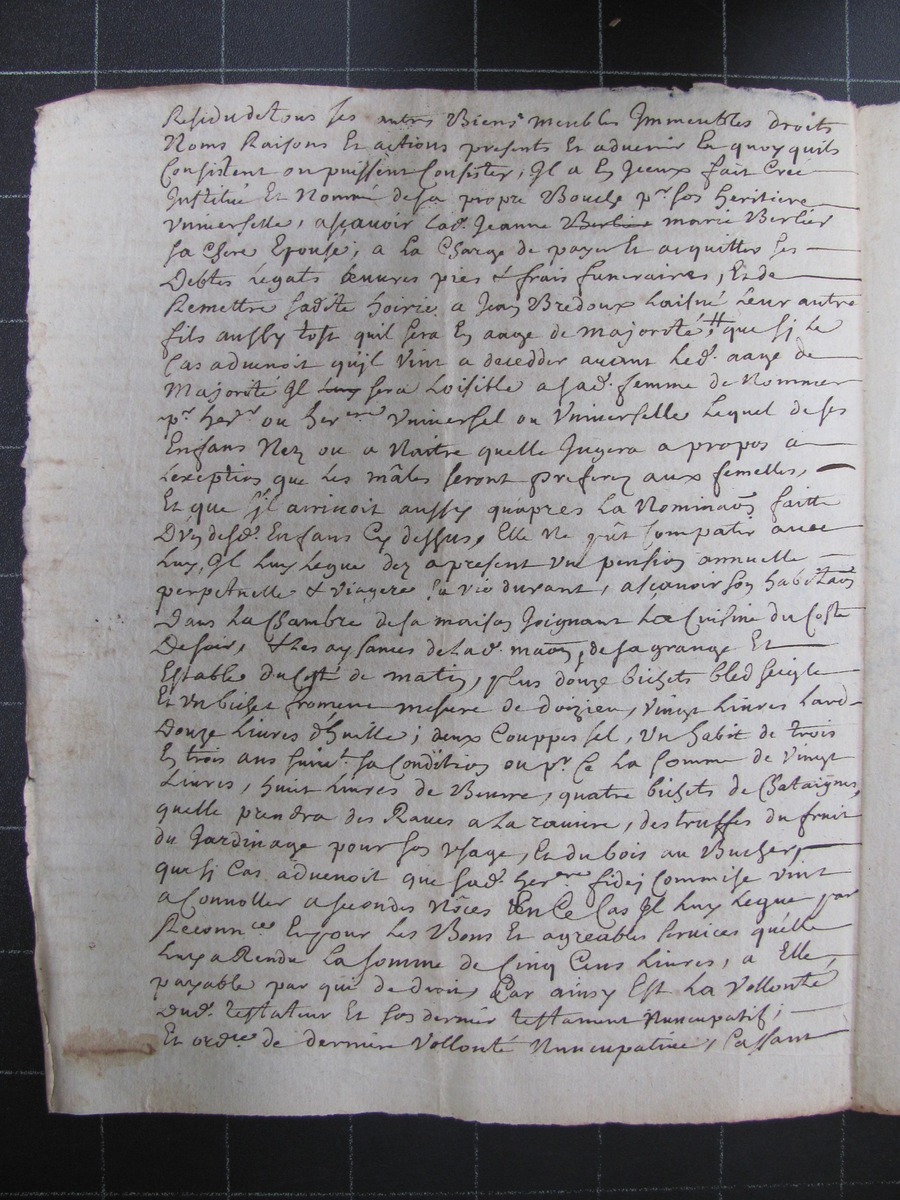 Residu de tous ses autres Biens meubles Immeubles droits
Noms Raisons Et actions presents Et advenir En quoy quils
Consistent ou puissent Consister, Il a En Iceux fait Créé
Institué Et Nommé de sa propre Bouche pr son heritiere
Vniverselle, ascavoir lad. Jeanne Berlier marie Berlier
sa Chere Epouse, a La Charge de payer Et acquitter ses
Debtes Legats Œuvres pies & frais funeraires, Et de
Remettre sadite hoirie a Jean Bredoux Laisné Leur autre
fils aussy tost quil sera En aage de majorité, # que si le
Cas advenoit quil vint a decedder avant led. aage de
Majorité Il Luy sera Loisible a sad. femme de Nommer
pr herer ou herere Vniversel ou Vniverselle Lequel de ses
Enfans Nez ou a Naitre quelle Jugera a propos a
Lexeption que Les mâles seront preferez aux femelles,
Et que s'il arrivoit aussy quapres La Nominaon faitte
D'un desd. Enfans Cy dessus, Elle Ne pût Compatir avec
Luy, Il Luy Legue dez apresent une pension annuelle
perpetuelle & viagere sa vie durant, ascavoir son habitaon
Dans La Chambre de sa maison Joignant La Cuisine du Costé
De soir, & Les aysances de Lad. maon, de sa grange Et
Estable du Costé de matin, plus douze bichets bled seigle
Et un bichet froment mesure de doizieu, vingt Livres Lard
Douze Livres d'huille; deux Couppes sel, un habit de trois
En trois ans suivt sa Condition ou pr Ce La somme de vingt
Livres, huit Livres de Beurre, quatre bichets de Chataignes,
quelle prendra des Raves a La raviere, des truffes du fruit
du Jardinage pour son usage, Et du bois au Bucher,
que si Cas advenoit que sad. herere fidei Commise vint
a Convoller a secondes Nôces En Ce Cas Il Luy Legue par
Reconnce Et pour Les Bons Et agreables services qu'elle
Luy a Rendu La somme de Cinq Cens Livres, a Elle
payable par qui de droit, Car ainsy Est La Vollonté
Dud. testateur Et son dernier testament Nuncupatif;
Et ordce de derniere Vollonté Nuncupative, Cassant